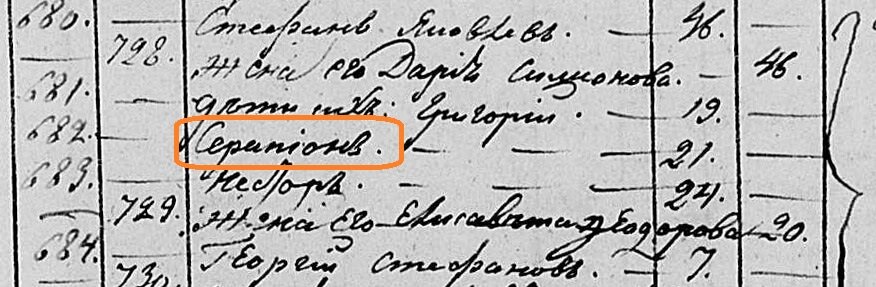 680. — Стефанъ Яковлевъ. — 46.
— 728. Жена его Дарія Симіонова. — 46.
681. — дѣти ихъ: Григорій. — 19.
682. — Серапіонъ. — — 21.
683. — Несторъ. — — 24.
— 729. Жена его Елисавета Ѳеодорова — 20.
684. — Георгій Стефановъ. — 7. —
730.